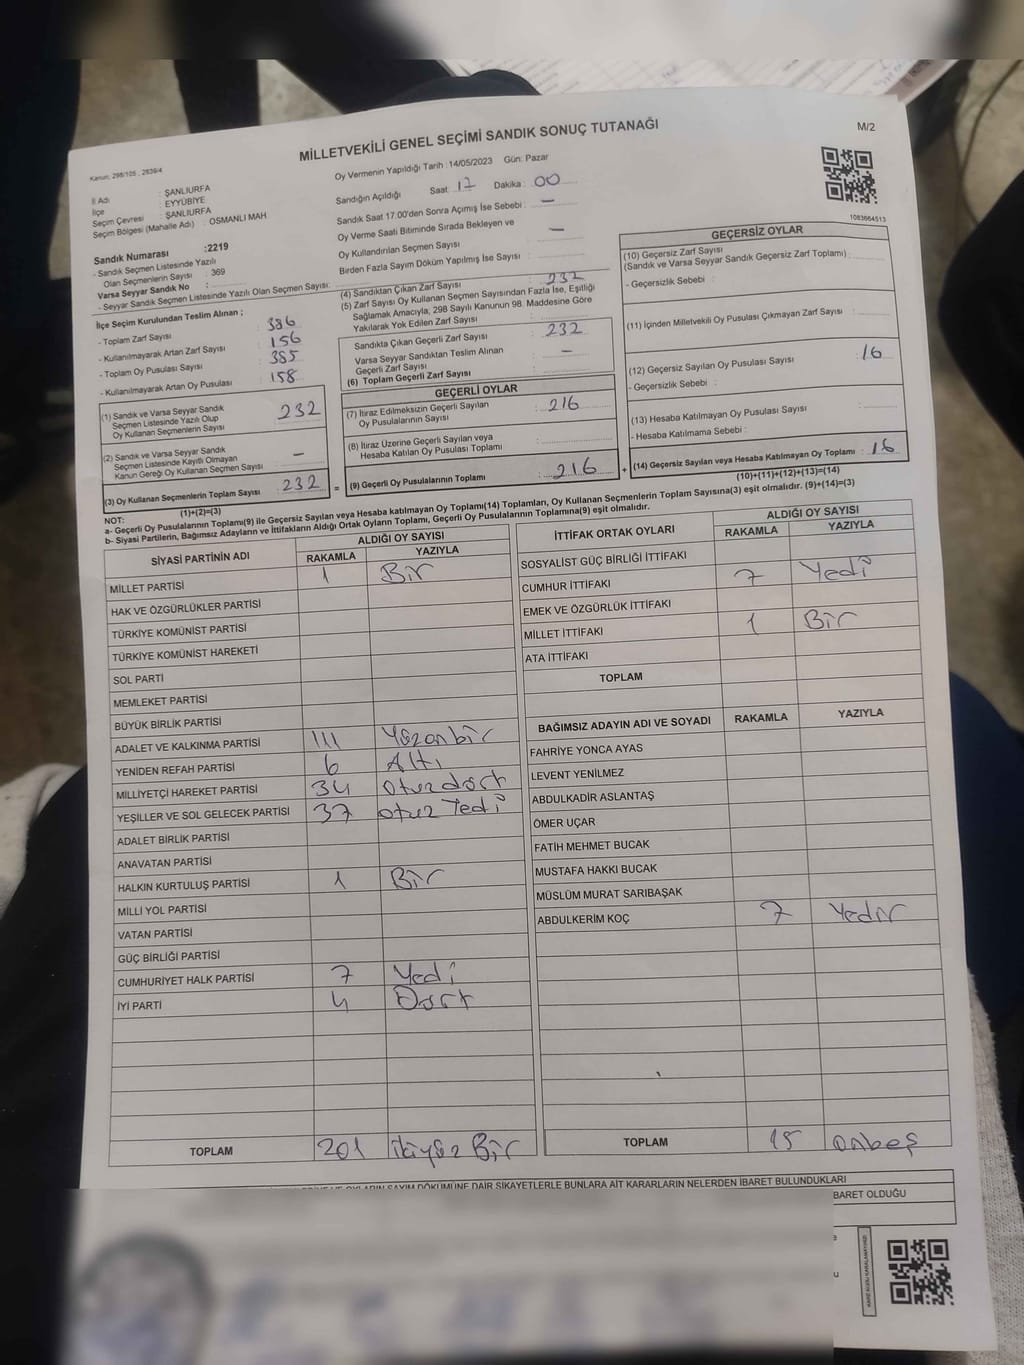 MİLLETVEKİLİ GENEL SEÇİMİ SANDIK SONUÇ TUTANAĞI
M/2
Kanun: 298/105 , 2839/4
Oy Vermenin Yapıldığı Tarih : 14/05/2023 Gün: Pazar
İl Adı : ŞANLIURFA
İlçe : EYYÜBİYE
Seçim Çevresi : ŞANLIURFA
Seçim Bölgesi (Mahalle Adı) : OSMANLI MAH
Sandık Numarası :2219
- Sandık Seçmen Listesinde Yazılı
Olan Seçmenlerin Sayısı : 369
Varsa Seyyar Sandık No :
- Seyyar Sandık Seçmen Listesinde Yazılı Olan Seçmen Sayısı:
Sandığın Açıldığı Saat: 17 Dakika : 00
Sandık Saat 17.00'den Sonra Açımış İse Sebebi : -
Oy Verme Saati Bitiminde Sırada Bekleyen ve
Oy Kullandırılan Seçmen Sayısı : -
Birden Fazla Sayım Döküm Yapılmış İse Sayısı :
1083664513
İlçe Seçim Kurulundan Teslim Alınan ;
- Toplam Zarf Sayısı : 386
- Kullanılmayarak Artan Zarf Sayısı : 156
- Toplam Oy Pusulası Sayısı : 385
- Kullanılmayarak Artan Oy Pusulası : 158
(1) Sandık ve Varsa Seyyar Sandık
Seçmen Listesinde Yazılı Olup
Oy Kullanan Seçmenlerin Sayısı : 232
(2) Sandık ve Varsa Seyyar Sandık
Seçmen Listesinde Kayıtlı Olmayan
Kanun Gereği Oy Kullanan Seçmen Sayısı : -
(3) Oy Kullanan Seçmenlerin Toplam Sayısı : 232
(1)+(2)=(3)
(4) Sandıktan Çıkan Zarf Sayısı : 232
(5) Zarf Sayısı Oy Kullanan Seçmen Sayısından Fazla İse, Eşitliği
Sağlamak Amacıyla; 298 Sayılı Kanunun 98. Maddesine Göre
Yakılarak Yok Edilen Zarf Sayısı :
Sandıkta Çıkan Geçerli Zarf Sayısı : 232
Varsa Seyyar Sandıktan Teslim Alınan
Geçerli Zarf Sayısı : -
(6) Toplam Geçerli Zarf Sayısı
GEÇERLİ OYLAR
(7) İtiraz Edilmeksizin Geçerli Sayılan
Oy Pusulalarının Sayısı : 216
(8) İtiraz Üzerine Geçerli Sayılan veya
Hesaba Katılan Oy Pusulası Toplamı :
= (9) Geçerli Oy Pusulalarının Toplamı : 216
GEÇERSİZ OYLAR
(10) Geçersiz Zarf Sayısı
(Sandık ve Varsa Seyyar Sandık Geçersiz Zarf Toplamı) :
- Geçersizlik Sebebi :
(11) İçinden Milletvekili Oy Pusulası Çıkmayan Zarf Sayısı :
(12) Geçersiz Sayılan Oy Pusulası Sayısı : 16
- Geçersizlik Sebebi :
(13) Hesaba Katılmayan Oy Pusulası Sayısı :
- Hesaba Katılmama Sebebi :
+ (14) Geçersiz Sayılan veya Hesaba Katılmayan Oy Toplamı : 16
(10)+(11)+(12)+(13)=(14)
NOT:
a- Geçerli Oy Pusulalarının Toplamı(9) ile Geçersiz Sayılan veya Hesaba katılmayan Oy Toplamı(14) Toplamları, Oy Kullanan Seçmenlerin Toplam Sayısına(3) eşit olmalıdır. (9)+(14)=(3)
b- Siyasi Partilerin, Bağımsız Adayların ve İttifakların Aldığı Ortak Oyların Toplamı, Geçerli Oy Pusulalarının Toplamına(9) eşit olmalıdır.
SİYASİ PARTİNİN ADI ALDIĞI OY SAYISI
RAKAMLA YAZIYLA
MİLLET PARTİSİ 1 Bir
HAK VE ÖZGÜRLÜKLER PARTİSİ
TÜRKİYE KOMÜNİST PARTİSİ
TÜRKİYE KOMÜNİST HAREKETİ
SOL PARTİ
MEMLEKET PARTİSİ
BÜYÜK BİRLİK PARTİSİ
ADALET VE KALKINMA PARTİSİ 111 Yüzonbir
YENİDEN REFAH PARTİSİ 6 Altı
MİLLİYETÇİ HAREKET PARTİSİ 34 Otuzdört
YEŞİLLER VE SOL GELECEK PARTİSİ 37 otuz Yedi
ADALET BİRLİK PARTİSİ
ANAVATAN PARTİSİ
HALKIN KURTULUŞ PARTİSİ 1 Bir
MİLLİ YOL PARTİSİ
VATAN PARTİSİ
GÜÇ BİRLİĞİ PARTİSİ
CUMHURİYET HALK PARTİSİ 7 Yedi
İYİ PARTİ 4 Dört
TOPLAM 201 ikiyüz Bir
İTTİFAK ORTAK OYLARI ALDIĞI OY SAYISI
RAKAMLA YAZIYLA
SOSYALİST GÜÇ BİRLİĞİ İTTİFAKI
CUMHUR İTTİFAKI 7 Yedi
EMEK VE ÖZGÜRLÜK İTTİFAKI
MİLLET İTTİFAKI 1 Bir
ATA İTTİFAKI
TOPLAM
BAĞIMSIZ ADAYIN ADI VE SOYADI RAKAMLA YAZIYLA
FAHRİYE YONCA AYAS
LEVENT YENİLMEZ
ABDULKADİR ASLANTAŞ
ÖMER UÇAR
FATİH MEHMET BUCAK
MUSTAFA HAKKI BUCAK
MÜSLÜM MURAT SARIBAŞAK
ABDULKERİM KOÇ 7 Yedir
TOPLAM 15 onbeş
OYLARIN SAYIM DÖKÜMÜNE DAİR ŞİKAYETLERLE BUNLARA AİT KARARLARIN NELERDEN İBARET BULUNDUKLARI
BARET OLDUĞU